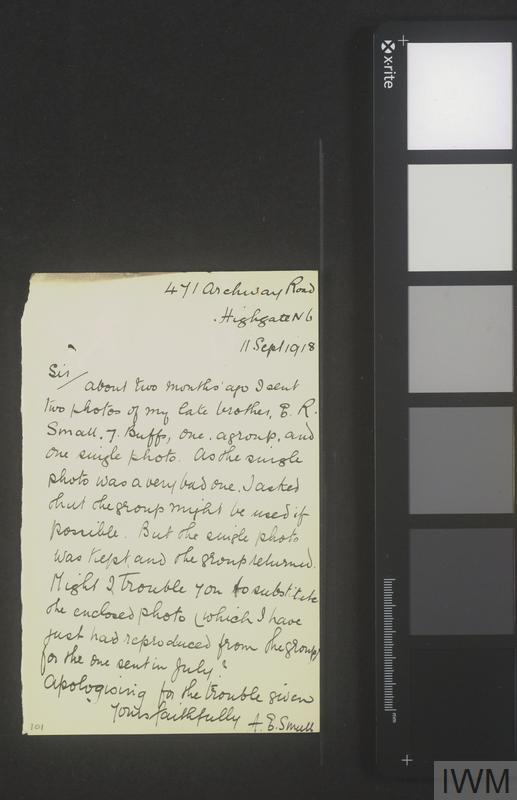 471 Archway Road
Highgate N6
11 Sept 1918
Sir/
about two months ago I sent
two photos of my late brother, E. R.
Small. 7. Buffs, one, a group, and
one single photo. As the single
photo was a very bad one, I asked
that the group might be used if
possible. But the single photo
was kept and the group returned.
Might I trouble you to substitute
the enclosed photo (which I have
just had reproduced from the group)
for the one sent in July?
Apologising for the trouble given
Yours faithfully A. E. Small
101
x-rite
mm
IWM